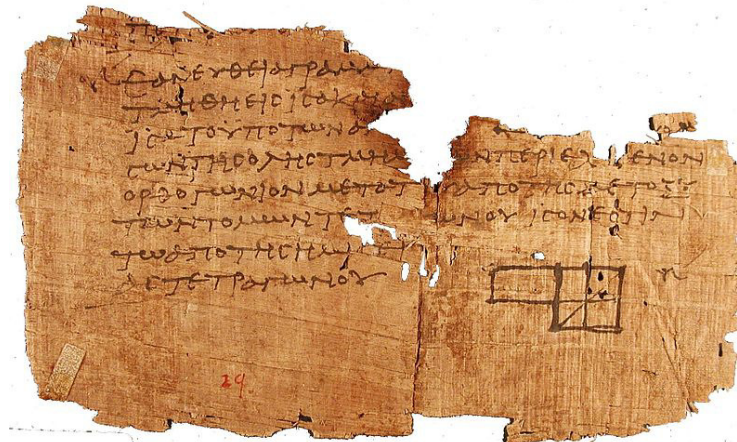 ΕΑΝ ΕΥΘΕΙΑ ΓΡΑΜΜ
ΤΜΗΘΗ ΕΙϹ ΙϹΑ Κ
ΙϹΑ ΤΟ ΥΠΟ ΤΩΝ Α
ϹΩΝ ΤΗϹ ΟΛΗϹ ΤΜΗΜΑ ΩΝ ΠΕΡΙΕΧ ΜΕΝΟΝ
ΟΡΘΟΓΩΝΙΟΝ ΜΕΤΑ ΤΟΥ ΑΠΟ ΤΗϹ ΜΕΤΟΞΥ
ΤΩΝ ΤΟΜΩΝ ΤΕΤ ΩΝΟΥ ΙϹΟΝ ΕϹΤΙΝ
ΤΩ ΑΠΟ ΤΗϹ ΗΜΙϹΕΙ
ΑϹ ΤΕΤΡΑΓΩΝΟΥ
29.